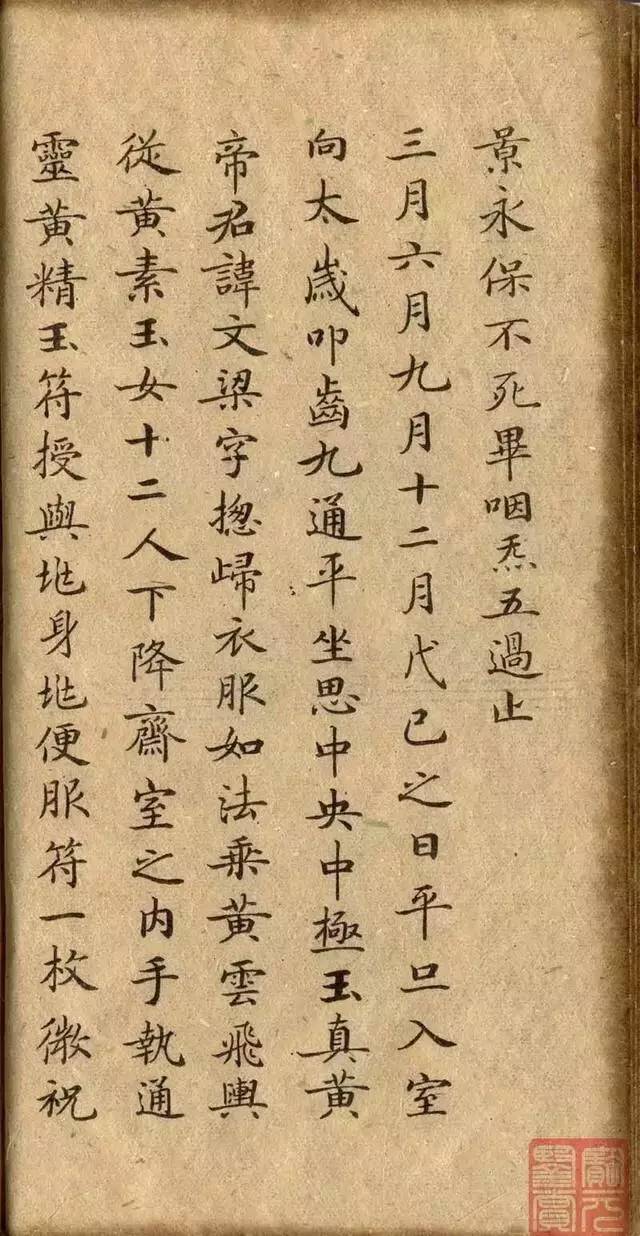 景永保不死畢咽炁五過止
三月六月九月十二月戊己之日平旦入室
向太歲叩齒九通平坐思中央中極玉真黃
帝君諱文梁字揔歸衣服如法乘黃雲飛輿
從黃素玉女十二人下降齋室之內手執通
靈黃精玉符授與兆身兆便服符一枚微祝